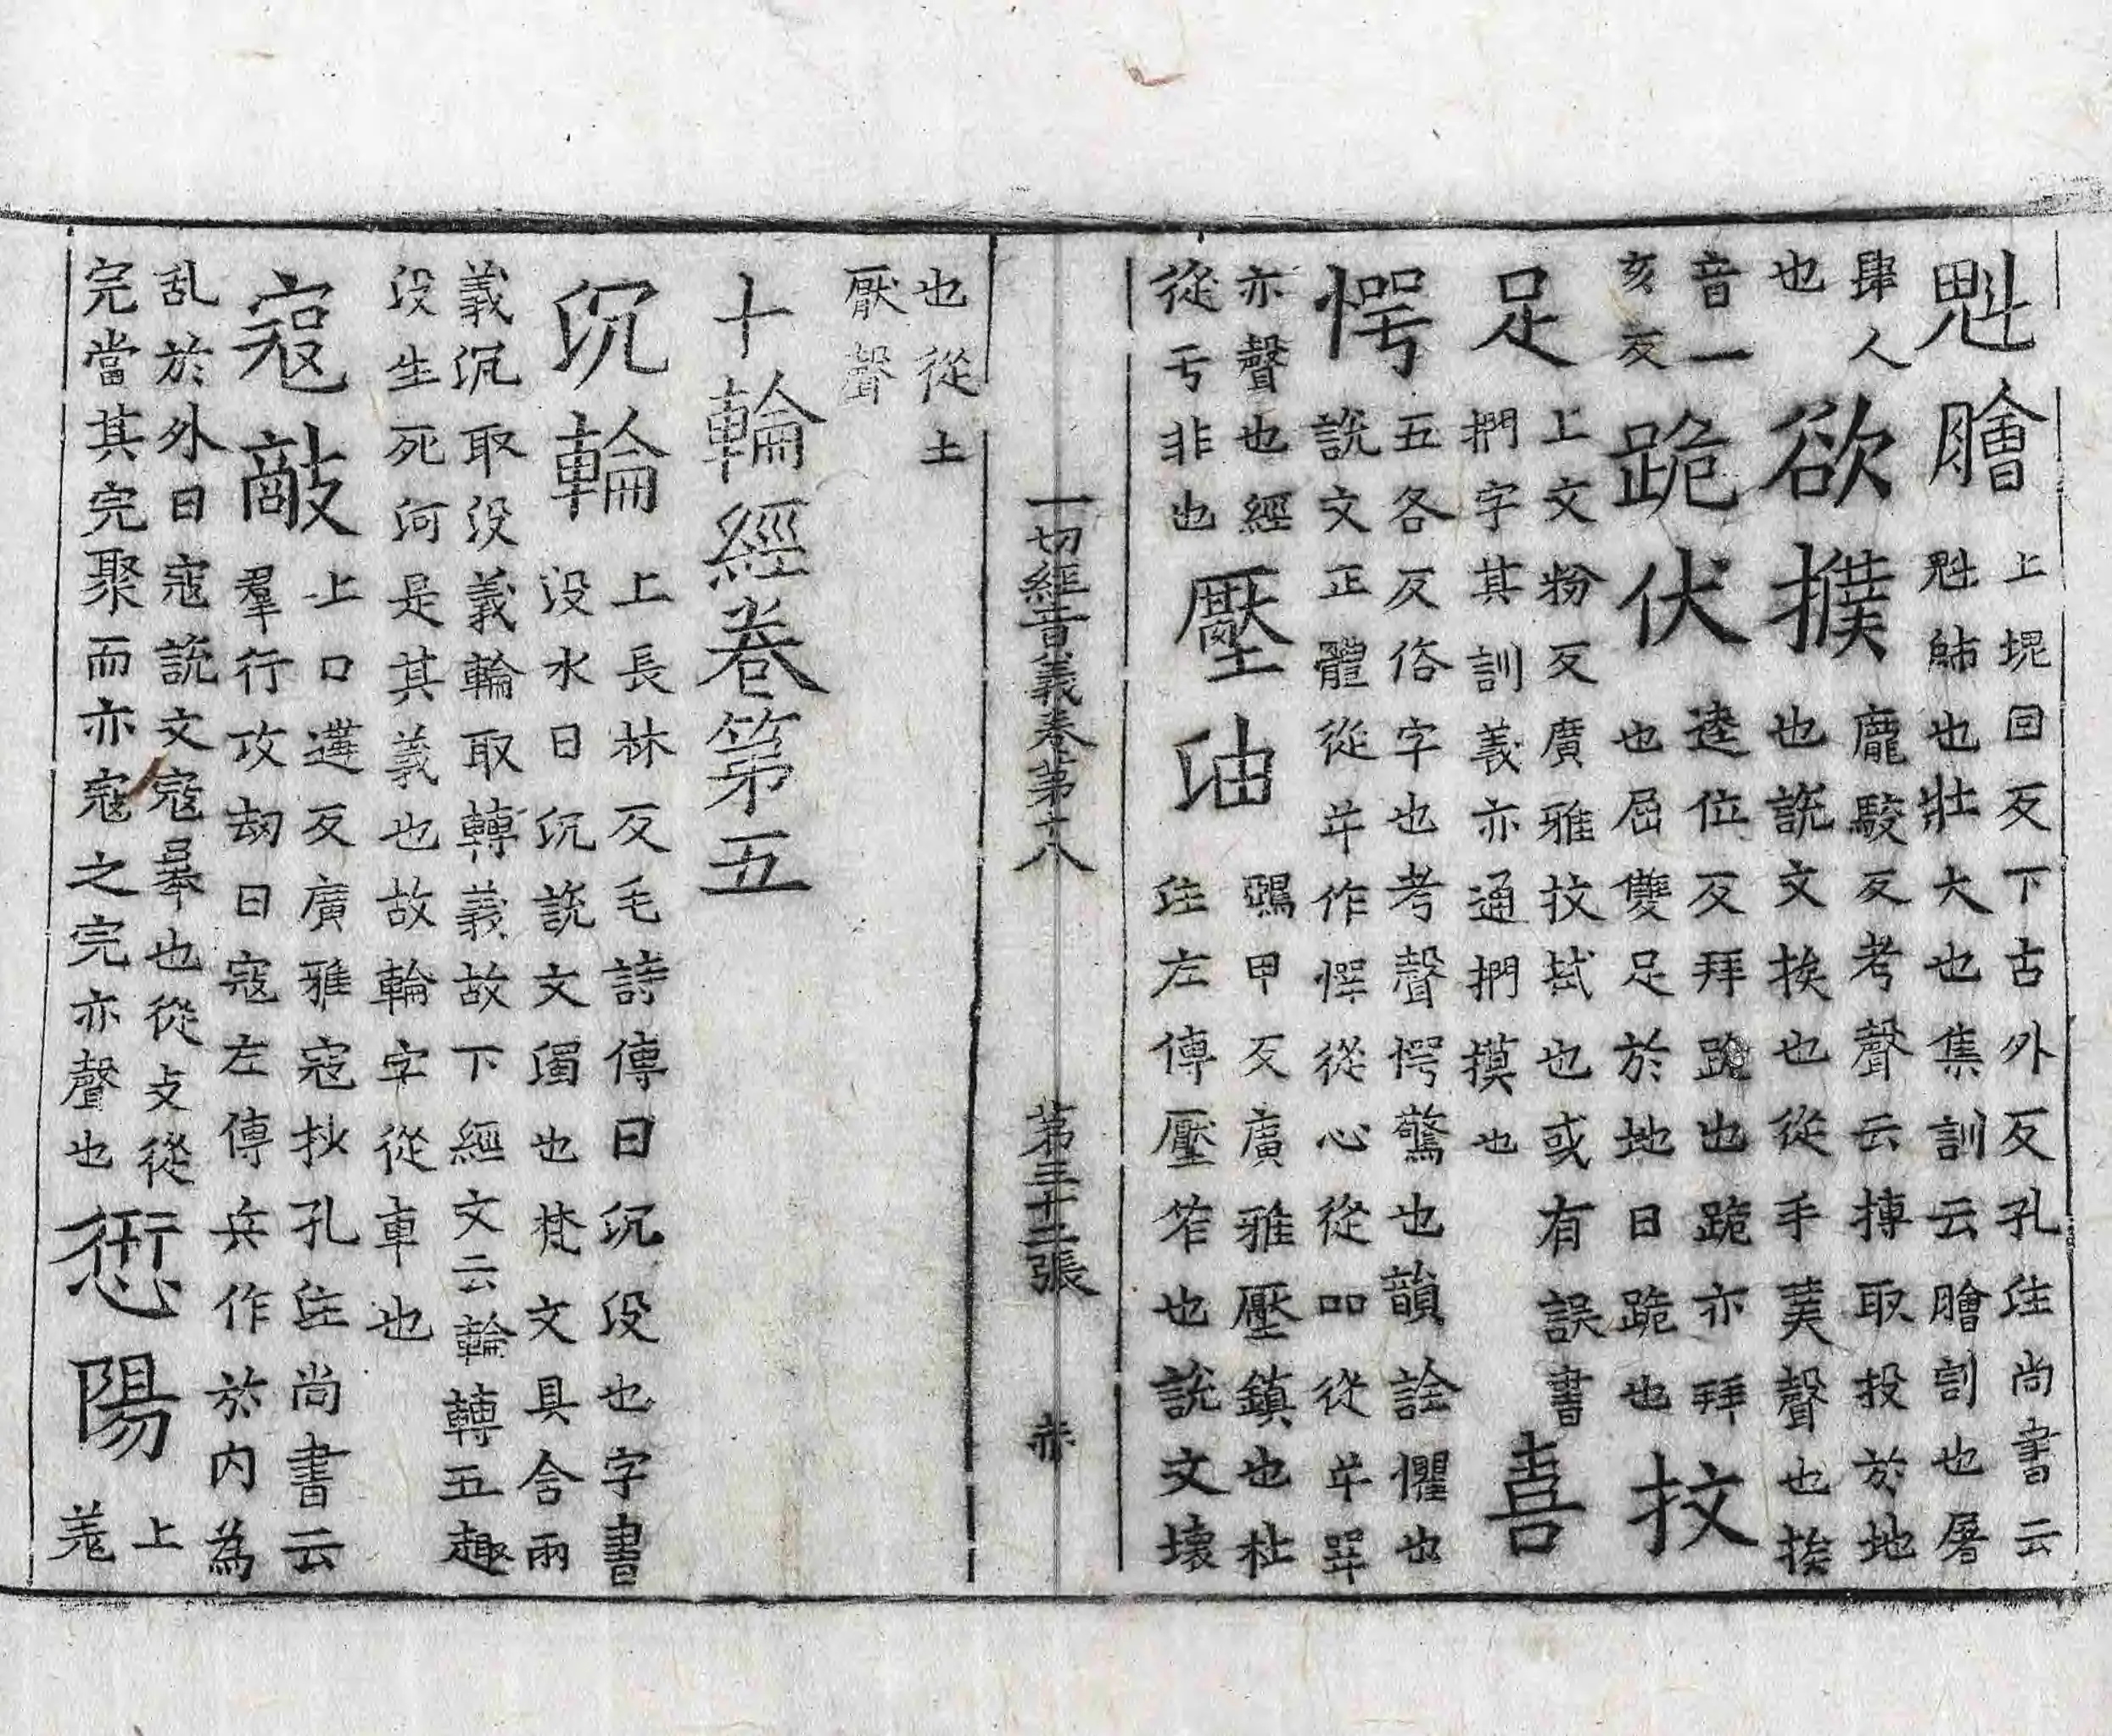 魁膾上堒回反下古外反孔注尚書云魁帥也壯大也集訓云膾割也屠
肆人也欲撲龐駮反考聲云摶取投於地也說文挨也從手菐聲也挨
音一亥反跪伏逵位反拜跪也跪亦拜也屈雙足於地曰跪也抆
足上文粉反廣雅抆拭也或有誤書捫字其訓義亦通捫摸也喜
愕五各反俗字也考聲愕驚也韻詮懼也說文正體從屰作㦍從心從吅從屰咢
亦聲也經從亏非也壓油鵶甲反廣雅壓鎮也杜注左傳壓笮也說文壞
一切經音義卷第十八 第三十二張 赤
也從土厭聲
十輪經卷第五
沉輪上長林反毛詩傳曰沉没也字書没水曰沉說文濁也梵文具含兩
義沉取没義輪取轉義故下經文云輪轉五趣没生死河是其義也故輪字從車也
寇敵上口遘反廣雅寇抄孔注尚書云羣行攻劫曰寇左傳兵作於内為
乱於外曰寇說文寇暴也從攴從完當其完聚而亦寇之完亦聲也愆陽上羗